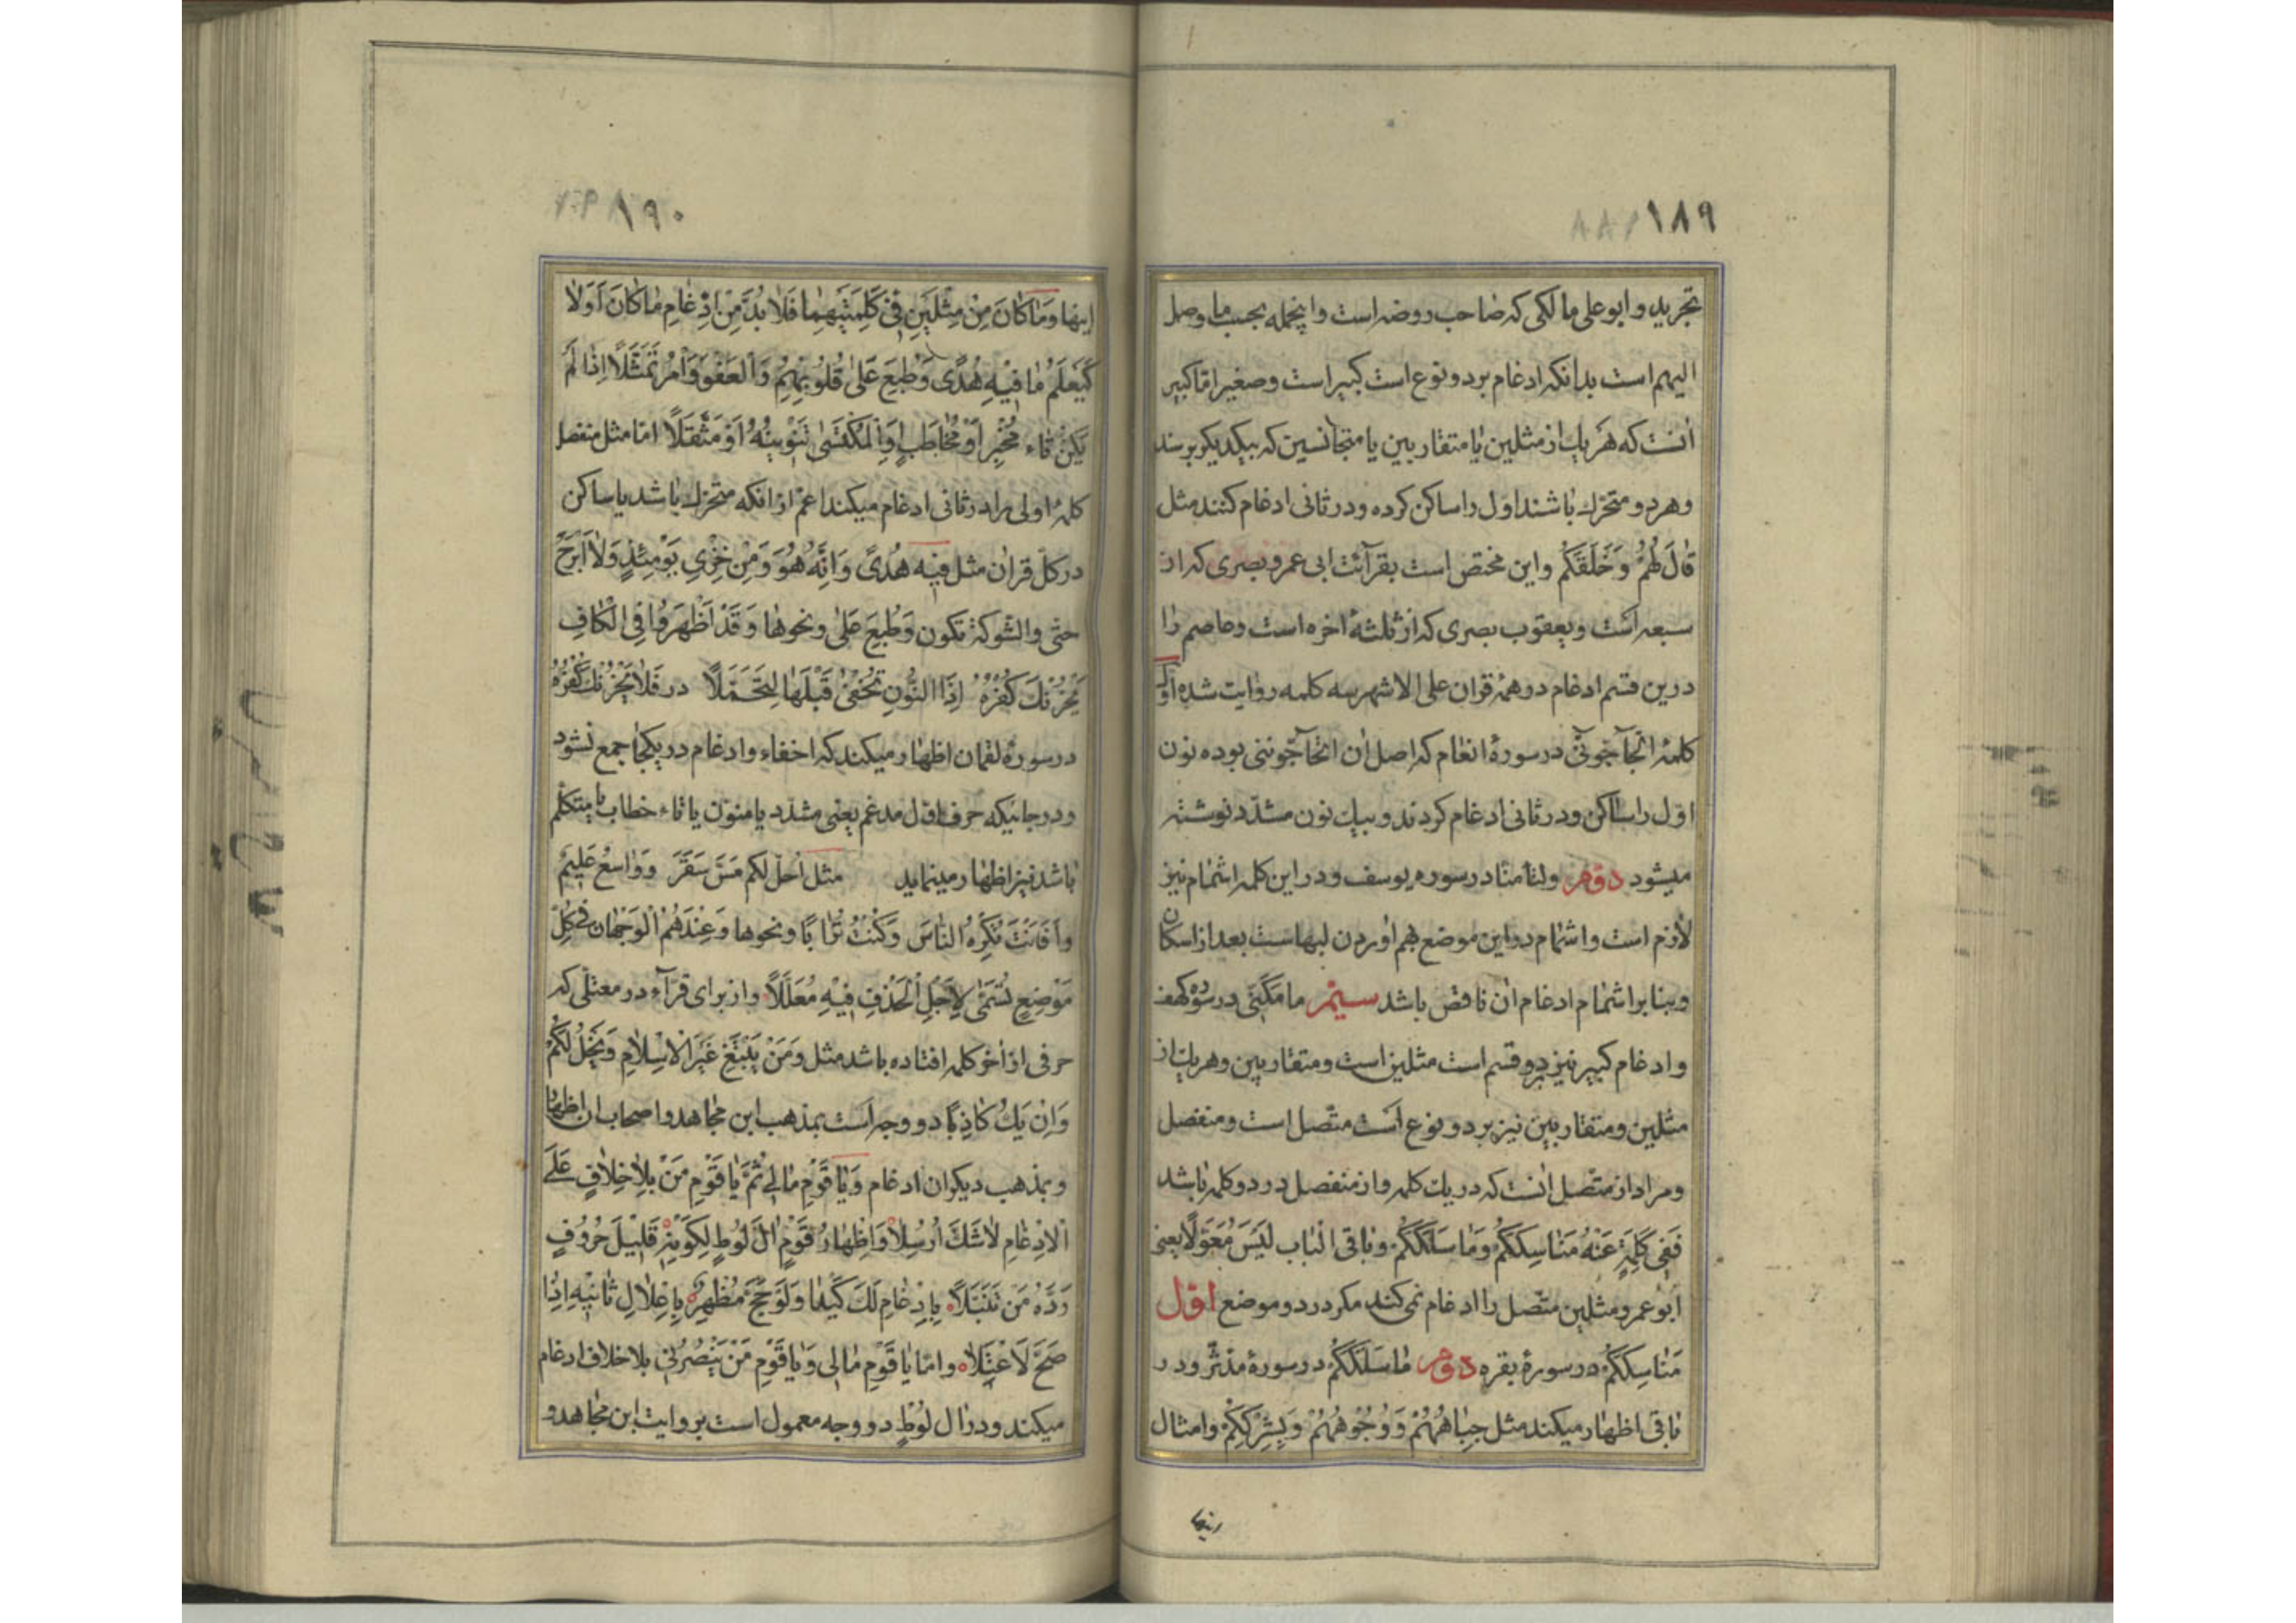 ۱۸۹
تجرید و ابو علی مالکی که صاحب روضه است و اینجمله بحسب ما وصل
الیهم است بدانکه ادغام بر دو نوع است کبیر است و صغیر امّا کبیر
آنست که هر یک از مثلین یا متقاربین یا متجانسین که بیکدیکر برسند
و هر دو متحرّك باشند اوّل را ساکن کرده و در ثانی ادغام کنند مثل
قٰالَ لَهُمْ وَخَلَقَكُمْ و این مختص است بقرآئت ابی عمرو بصری که از
سبعه است و یعقوب بصری که از ثلثهٔ اخره است و عاصم را
درین قسم ادغام در همهٔ قران علی الاشهر سه کلمه روایت شده اوّل
کلمهٔ اتُحٰآجّونّی در سورهٔ انعام که اصل آن اتحآجّوننی بوده نون
اوّل را ساکن و در ثانی ادغام کردند و بیك نون مشدّد نوشته
میشود دوّم ولٰتأمنّا در سوره یوسف و در این کلمه اشمٰام نیز
لازم است و اشمٰام در این موضع بهم اوردن لبهاست بعد از اسکان
و بنا بر اشمٰام ادغام ان ناقص باشد سیّم ما مَکَّنّی در سوره کهف
و ادغام کبیر نیز بر دو قسم است مثلین است و متقاربین و هر یك از
مثلین و متقاربین نیز بر دو نوع است متّصل است و منفصل
و مراد از متّصل انست که در یك کلمه و از منفصل در دو کلمه باشد
فَفِی کَلِمَةٍ عَنْهُ مَنٰاسِکَکُمْ وَمٰا سَلَکَکُمْ و بٰاقی الْبٰابِ لَیْسَ مُعَوَّلًا یعنی
ابو عمرو مثلین متّصل را ادغام نمی کند مکر در دو موضع اوّل
مَنٰاسِکَکُمْ در سورهٔ بقره دوّم مٰا سَلَکَکُمْ در سورهٔ مدّثّر و در
بٰاقی اظهٰار میکند مثل جِبٰاهُهُمْ وَوُجُوهُهُمْ وَبِشِرْکِکُمْ و امثال
اینها
۱۹۰
اینها وَمٰا کٰانَ مِنْ مِثْلَیْنِ فِی کَلِمَتَیْهِمٰا فَلٰا بُدَّ مِنْ اِدْغٰامِ مٰا کٰانَ اَوَّلٰا
کَیَعْلَمُ مٰا فِیْهِ هُدًی وَطُبِعَ عَلیٰ قُلُوبِهِمْ وَالْعَفْوَ وَأْمُرْ تَمَثَّلًا اِذٰا لَمْ
یَکُنْ تٰاء مُخْبِرٍ اَوْ مُخٰاطَبٍ اَوِ الْمُکْتَسیٰ تَنْوِینُهُ اَوْ مُثَقَّلًا امّا مثل منفصل
کلمهٔ اولی را در ثانی ادغام میکند اعمّ از انکه متحرّك باشد یا ساکن
در کلّ قران مثل فِیْهِ هُدًی وَاِنَّهُ هُوَ وَمِنْ خِزْیِ یَوْمِئِذٍ وَلٰا اَبْرَحُ
حتّی والشّوکة تکون وَطُبِعَ عَلیٰ و نحوها وَقَدْ اَظْهَرُوا فِی الْکٰافِ
یَحْزُنْكَ کُفْرُهُ اِذِ النُّونُ تُخْفیٰ قَبْلَهٰا لِتَجَمَّلًا در فَلٰا یَحْزُنْكَ کُفْرُهُ
در سورهٔ لقمان اظهٰار میکند که اخفاء و ادغام در یکجا جمع نشود
و در جائیکه حرف اوّل مدغم یعنی مشدّد یا منوّن یا تٰاء خطاب یا متکلّم
بٰاشد نیز اظهٰار مینماید مثل اُحلّ لکم مَسَّ سَقَرَ وَوٰاسِعٌ عَلِیمٌ
وَاَفَاَنْتَ تُکْرِهُ النّٰاسَ وَکُنْتُ تُرٰابًا و نحوها وَعِنْدَهُمُ الْوَجْهٰانِ فی کُلِّ
مَوْضِعٍ تُسَمّیٰ لِاَجْلِ الْحَذْفِ فِیْهِ مُعَلَّلًا و از برای قرّآء در معتلّی که
حرفی از آخر کلمه افتاده باشد مثل وَمَنْ یَبْتَغِ غَیْرَ الْاِسْلٰامِ وَیَخْلُ لَکُمْ
وَاِنْ یَكُ کٰاذِبًا دو وجه است بمذهب ابن مجٰاهد و اصحاب ان اظهٰار
و بمذهب دیکران ادغام وَیٰا قَوْمِ مٰالِی ثُمَّ یٰا قَوْمِ مَنْ بِلٰا خِلٰافٍ عَلَی
الْاِدْغٰامِ لٰا شَكَّ اُرْسِلٰا وَاِظْهٰارُ قَوْمٍ اٰلَ لُوطٍ لِکَوْنِهِ قَلِیْلَ حُرُوفٍ
رَدَّهُ مَنْ تَنَبَّلٰا بِاِدْغٰامِ لَكَ کَیْدًا وَلَوْ حَجَّ مُظْهِرٌ بِاِعْلٰالِ ثٰانِیْهِ اِذٰا
صَحَّ لَاعْتَلٰا و امّا یٰا قَوْمِ مٰالِی وَیٰا قَوْمِ مَنْ یَنْصُرُنِی بلا خلاف ادغام
میکند و در اٰل لُوْطٍ دو وجه معمول است بروایت ابن مجٰاهد و